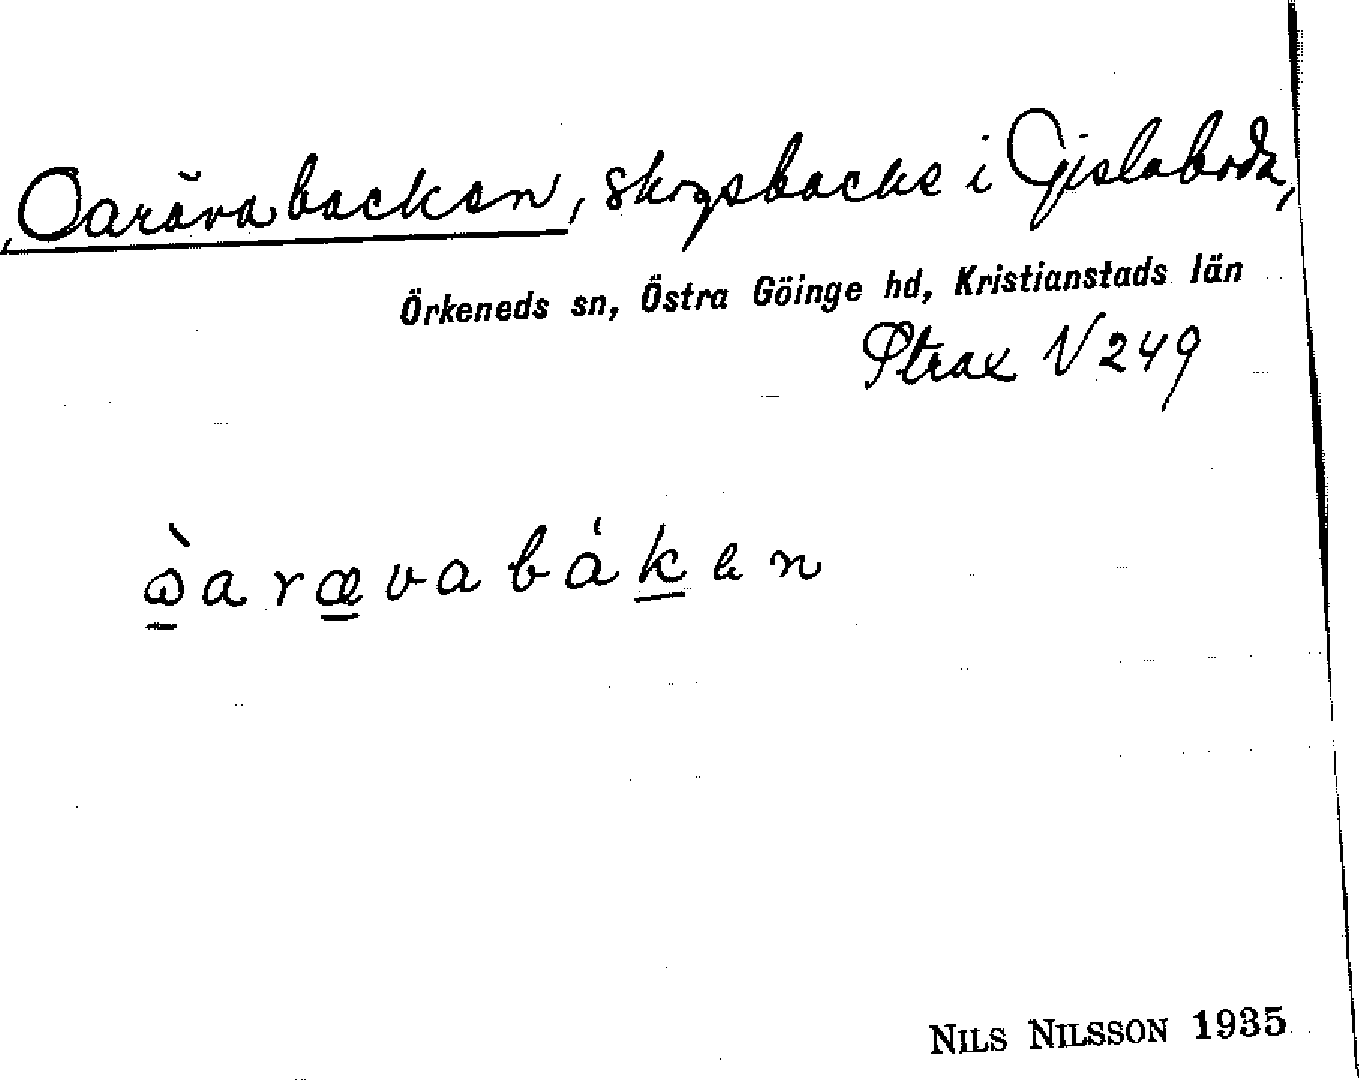 Oarävabacken, skogsbacke i Gislaboda,
Örkeneds sn, Östra Göinge hd, Kristianstads län
Strax V 249
ὼarævabáken
NILS NILSSON 1935